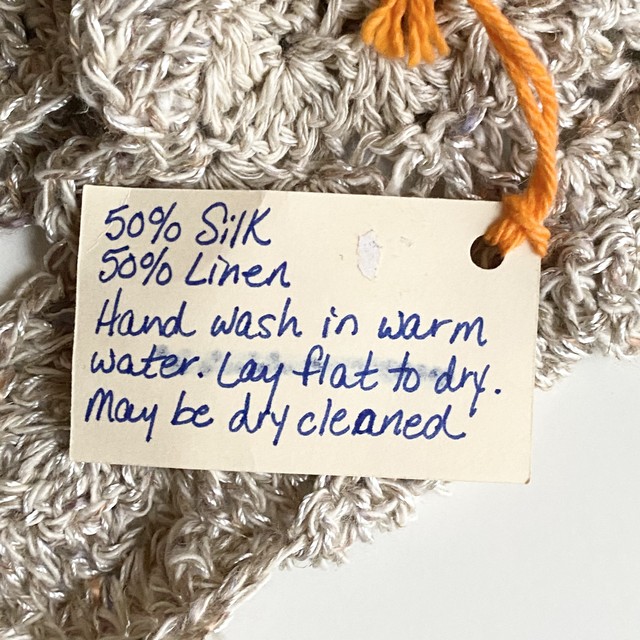 50% Silk
50% Linen
Hand wash in warm
water. Lay flat to dry.
May be dry cleaned